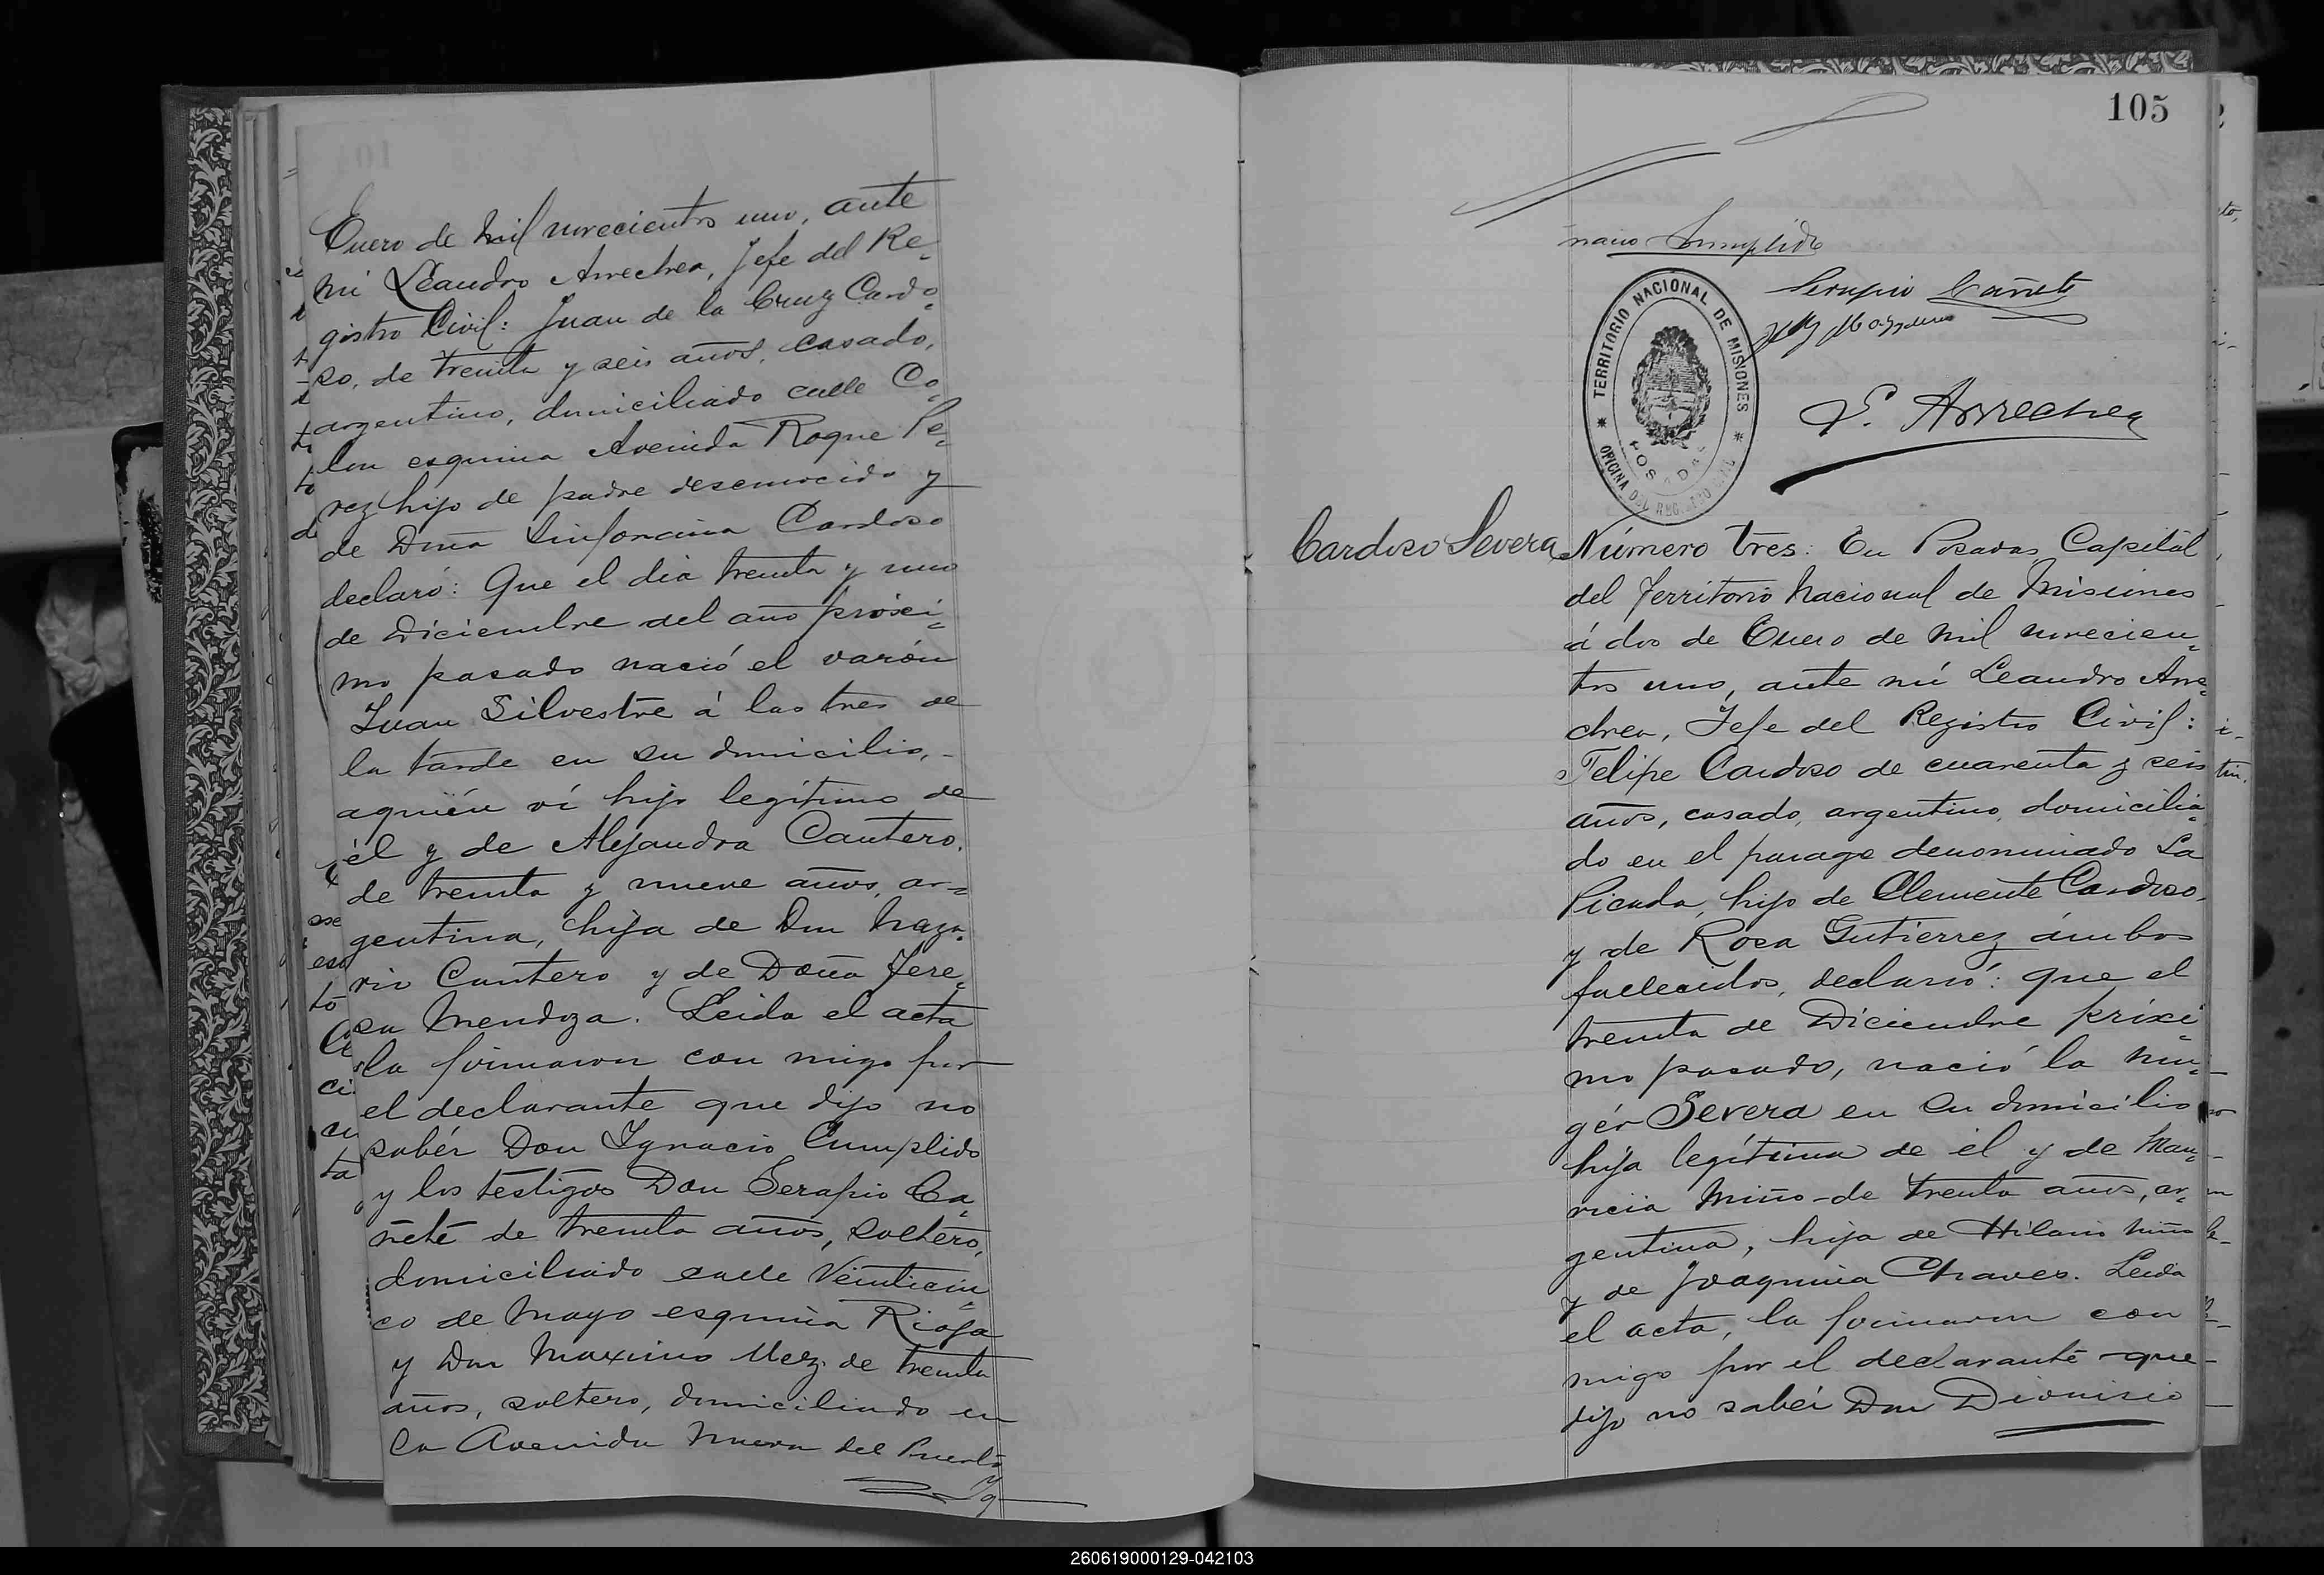 Enero de mil novecientos uno, ante
mi Leandro Arrechea, Jefe del Re=
gistro Civil: Juan de la Cruz Cardo=
so, de treinta y seis años, casado,
argentino, domiciliado calle Co=
lon esquina Avenida Roque Pe=
rez hijo de padre desconocido y
de Dona Sinforiana Cardoso
declaró: Que el dia treinta y uno
de Diciembre del año próxi=
mo pasado nació el varón
Juan Silvestre á las tres de
la tarde en su domicilio,-
aquién ví hijo legítimo de
él y de Alejandra Cantero,
de treinta y nueve años, ar=
gentina, hija de Don Naza=
rio Cantero y de Doña Tere=
sa Mendoza. Leida el acta
la firmaron con migo por
el declarante que dijo no
sabér Don Ygnacio Cumplido
y los testigos Don Serapio Ca=
ñete de treinta años, soltero,
domiciliado calle Veinticin=
co de Mayo esquina Rioja
y Don Maximo de treinta
años, soltero, domiciliado en
la Avenida Nueva del Puerto
105
nacio Cumplido
Serapio Cañete
L. Arrechea
TERRITORIO NACIONAL DE MISIONES
OFICINA DEL REGISTRO CIVIL
POSADAS
Cardoso Severa
Número tres: En Posadas Capital
del Territorio Nacional de Misiones
á dos de Enero de mil novecien=
tos uno, ante mí Leandro Arre=
chea, Jefe del Registro Civil:
Felipe Cardoso de cuarenta y seis
años, casado, argentino, domicilia=
do en el parage denominado La
Picada, hijo de Clemente Cardoso,
y de Rosa Gutierrez ámbos
fallecidos, declaró: que el
treinta de Diciembre próxi=
mo pasado, nació la mu=
gér Severa en su domicilio
hija legítima de él y de Mau=
ricia Miño de treinta años, ar=
gentina, hija de Hilario Miño
y de Joaquina Chaves. Leida
el acta, la firmaron con
migo por el declarante que
dijo no sabér Don Dionisio
260619000129-042103